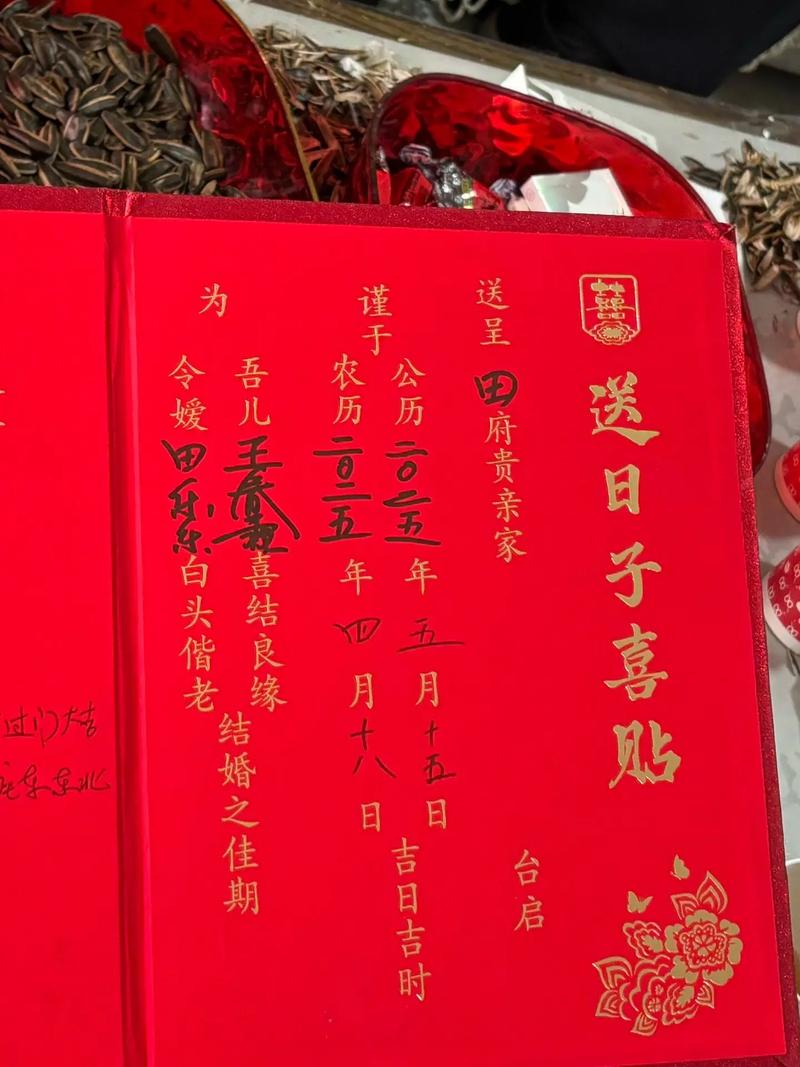 囍
送日子喜贴
送呈
田府贵亲家
台启
谨于
公历二〇二五年五月十五日
农历二〇二五年四月十八日
吉日吉时
为
吾儿王喜结良缘
令嫒田白头偕老
结婚之佳期
过门大吉
东东北